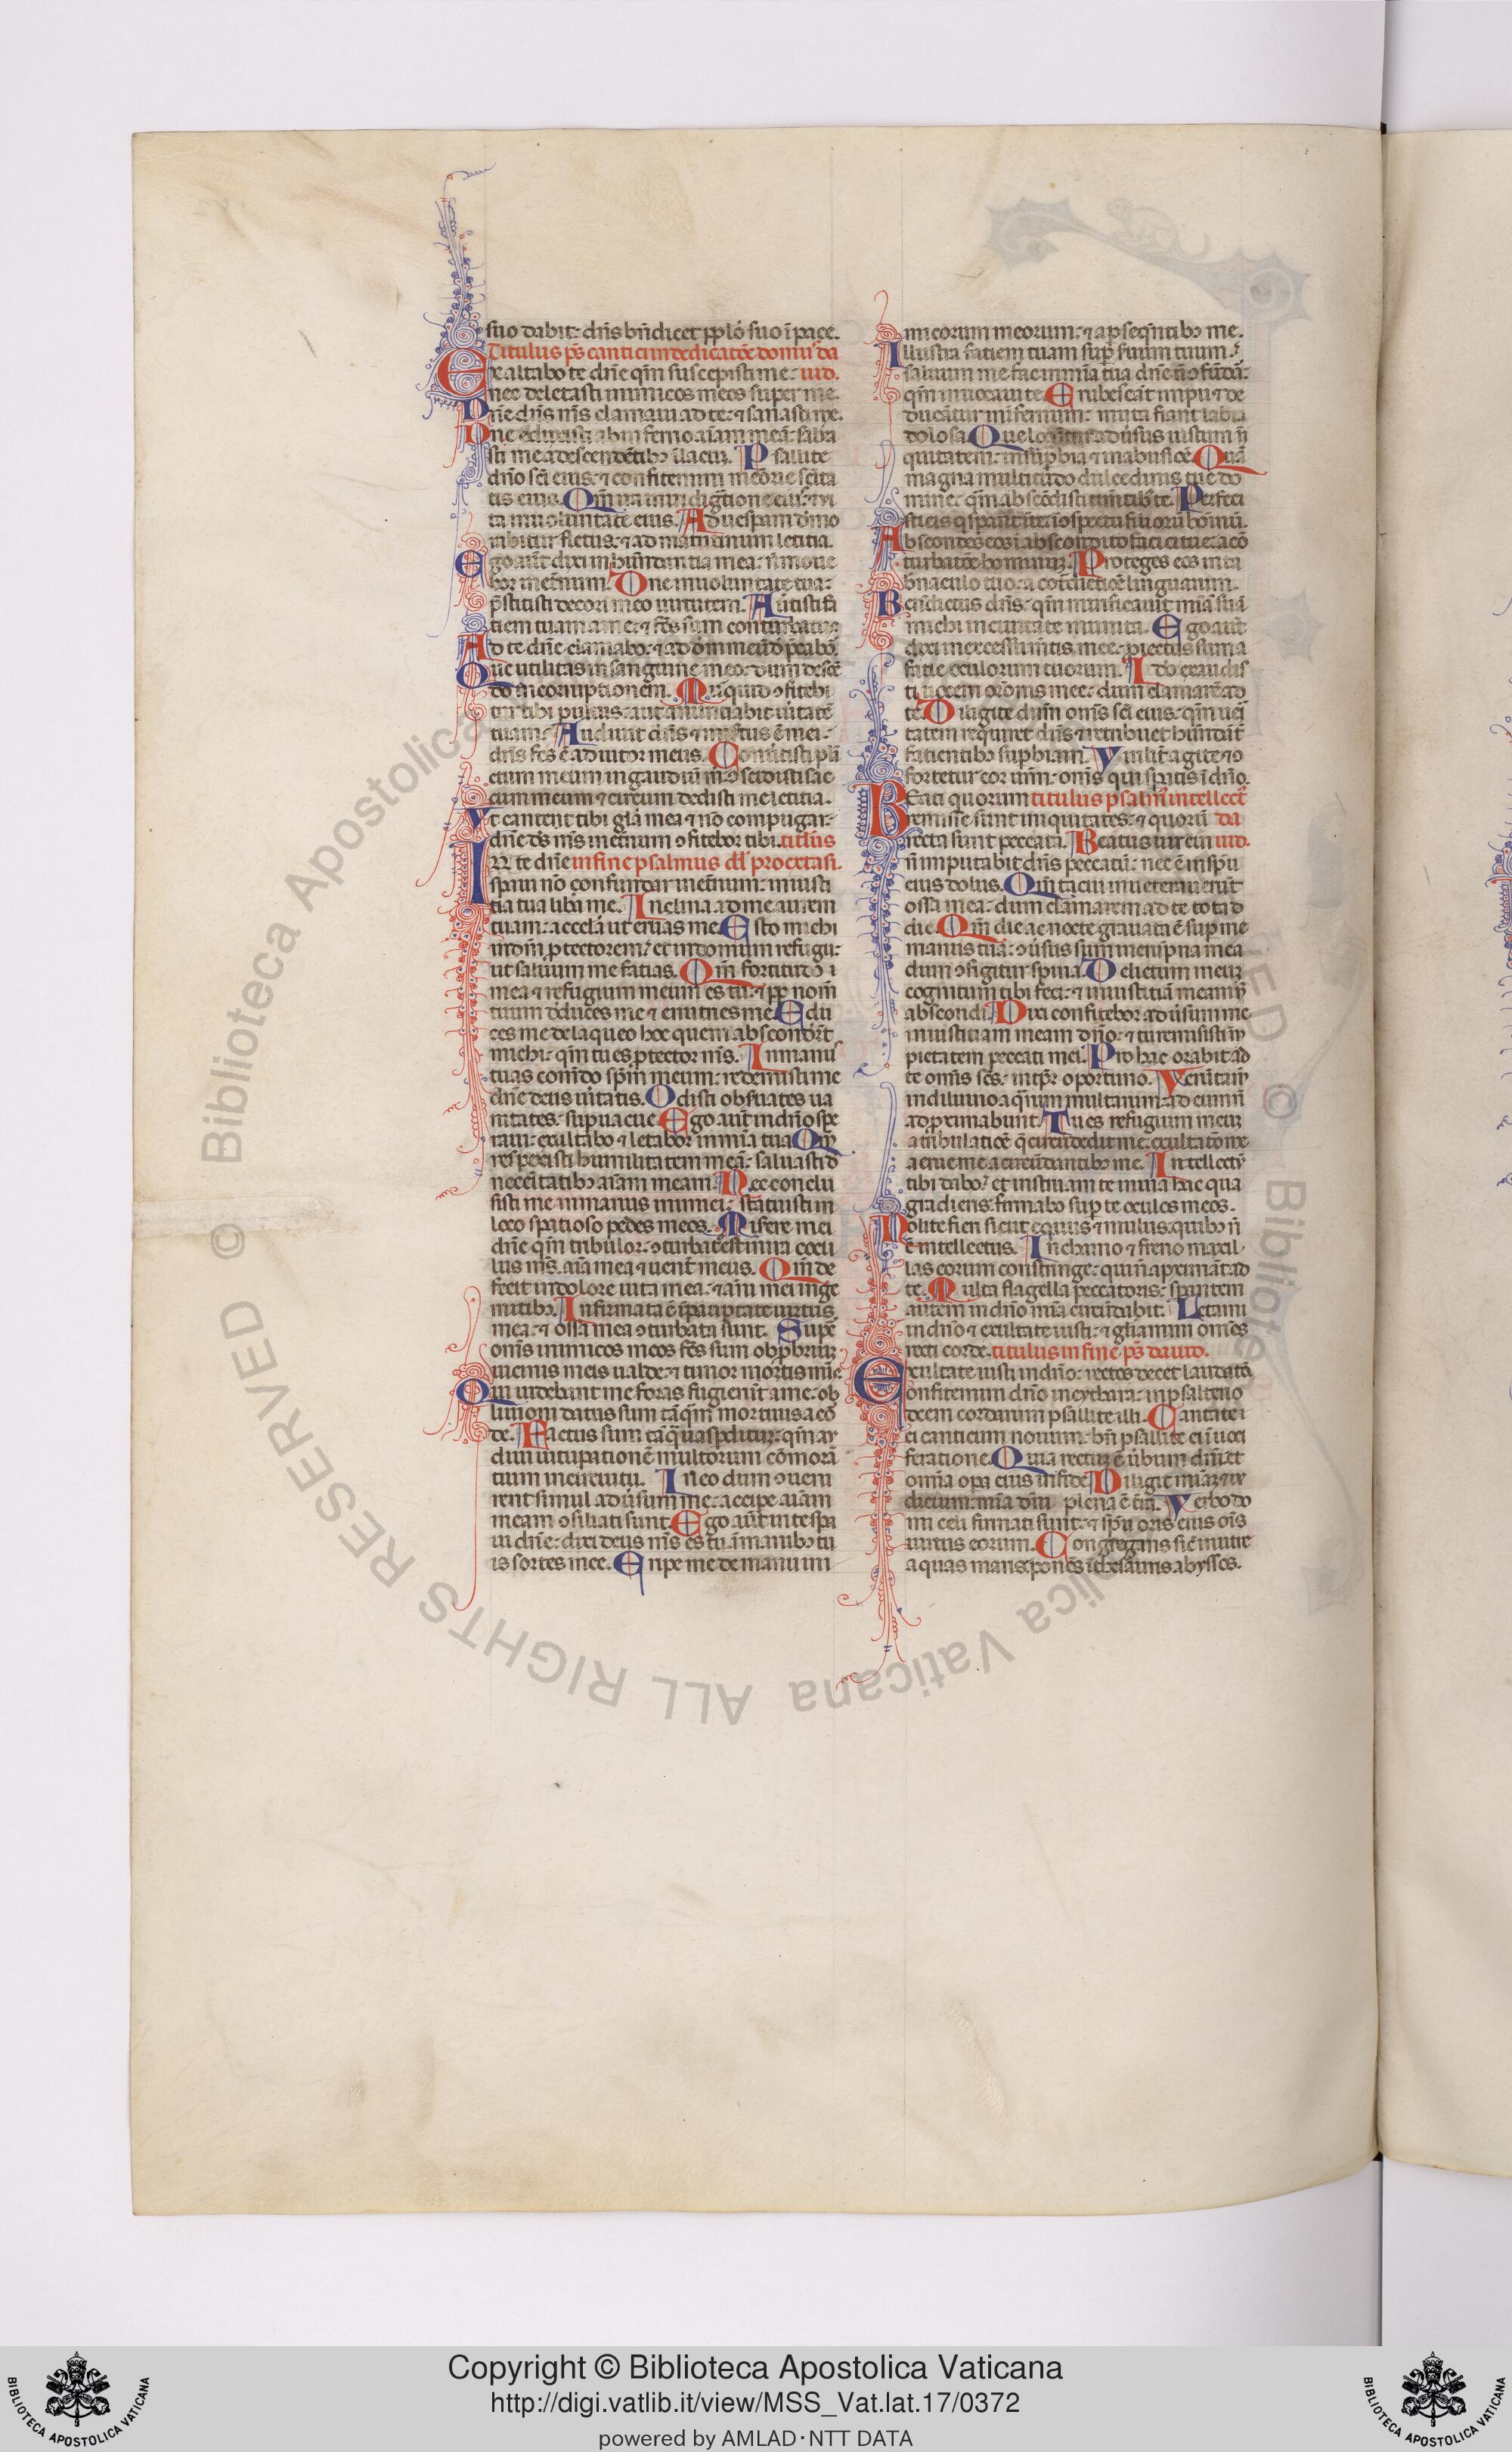 suo dabit: dn̄s bn̄dicet pplo suo ī pace.
Titulus ps̄ cantici in dedicatōe domus da
Exaltabo te dn̄e qm̄ suscepisti me: uid.
nec delectasti inimicos meos super me.
Dn̄e ds̄ ms̄ clamaui ad te: ⁊ sanasti me.
Dne eduxisti ab inferno aīam meā: salua
sti me a descendētibꝫ ī lacuꝫ. Psallite
dn̄o sc̄i eius: ⁊ confitemini memorie sc̄ita
tis eius. Qm̄ ira in indignatione eius: ⁊ ui
ta in uoluntate eius. Ad uesꝑam demo
rabitur fletus: ⁊ ad matutinum letitia.
Ego aut̄ dixi in habundantia mea: n̄ moue
bor in et̄num. Dne in uoluntate tua:
p̄stitisti decori meo uirtutem. Auertisti fa
tiem tuam a me: ⁊ fcs̄ sum conturbatus
Ad te dn̄e clamabo: ⁊ ad dm̄ meū dep̄cabor.
Que utilitas in sanguine meo: dum descē
do in corruptionem. Nūquid ↄfitebi
tur tibi puluis: aut annuntiabit uitatē
tuam. Audiuit dn̄s ⁊ misertus ē mei:
dn̄s fcs̄ ē adiutor meus. Conuertisti plā
ctum meum in gaudiū m̄: ↄscidisti sac
cum meum ⁊ circum dedisti me letitia.
Vt cantet tibi gl̄a mea ⁊ nō compugar:
dn̄e ds̄ ms̄ in et̄num ↄfitebor tibi. titulus
IN te dn̄e in fine psalmus dd̄ pro extasi.
speraui nō confundar in et̄num: in iusti
tia tua libera me. Inclina ad me aurem
tuam: accelera ut eruas me. Esto michi
in dm̄ ꝓtectorem: et in domum refugii:
ut saluum me facias. Qm̄ fortitudo
mea ⁊ refugium meum es tu: ⁊ ꝓp nom̄
tuum deduces me ⁊ enutries me. Edu
ces me de laqueo hoc quem absconder̄t
michi: qm̄ tu es ꝓtector ms̄. In manus
tuas commēdo spm̄ meum: redemisti me
dn̄e deus uitatis. Odisti obseruātes ua
nitates: superuacue. Ego aut̄ in dn̄o spe
raui: exultabo ⁊ letabor in mīa tua. Qm̄
respexisti humilitatem meā: saluasti d
necessitatibꝫ aīam meam. Nec conclu
sisti me in manus inimici: statuisti in
loco spatioso pedes meos. Miserere mei
dn̄e qm̄ tribulor: ↄturbatus est in ira ocu
lus ms̄ aīa mea ⁊ uent̄ meus. Qm̄ de
fecit in dolore uita mea: ⁊ anni mei in ge
mitibꝫ. Infirmata ē ī paupertate uirtus
mea: ⁊ ossa mea ↄturbata sunt. Super
omīs inimicos meos fcs̄ sum obꝓbriuꝫ
uicinis meis ualde: ⁊ timor mortis mīe
Qui uidebant me foras fugierūt a me: ob
liuioni datus sum tāqm̄ mortuus a cor
de. Factus sum tāqm̄ uas perdituꝫ: qm̄ au
diui uituperationē multorum commorā
tium in circuitu. In eo dum ↄueni
rent simul aduersum me: accipe aīam
meam ↄsiliati sunt. Ego aut̄ in te spera
ui dn̄e: dixi deus ms̄ es tu: ī manibꝫ tu
is sortes mee. Eripe me de manu ini
micorum meorum: ⁊ a ꝑsequētibꝫ me.
Illustra fatiem tuam suꝑ seruum tuum:
saluum me fac in mīa tua dn̄e n̄ ↄfundar:
qm̄ inuocaui te. Erubescāt impii ⁊ de
ducātur in infernum: muta fiant labia
dolosa. Que locuntur aduersus iustum in
iquitatem: in suꝑbia ⁊ in abusiōe. Quā
magna multitudo dulcedinis tue do
mine: qm̄ abscondisti timētibꝫ te. Perfeci
sti eis qui sperant in te: in conspectu filiorū hominū.
Abscondes eos ī abscondito faciei tue: a con
turbatōe hominuꝫ. Proteges eos in ta
bernaculo tuo: a cōtradictiōe linguarum.
Bn̄dictus dn̄s: qm̄ mirificauit mīam suā
michi in ciuitate munita. Ego aut̄
dixi in excessu mentis mee: proiectus sum a
fatie oculorum tuorum. Ideo exaudis
ti uocem orōnis mee: dum clamarē ad
te. Diligite dn̄m omīs sc̄i eius: qm̄ ueri
tatem requiret dn̄s ⁊ retribuet habundāt
facientibꝫ superbiam. Viriliter agite ⁊ ↄ
fortetur cor urm̄: omīs qui speratis ī dn̄o.
BEati quorum titulus psalmi intellect̄
remisse sunt iniquitates: ⁊ quorū da
tecta sunt peccata. Beatus uir cui uid.
n̄ imputabit dn̄s peccatū: nec ē in spū
eius dolus. Qm̄ tacui inueterauerūt
ossa mea: dum clamarem ad te tota d
die. Qm̄ die ac nocte grauata ē suꝑ me
manus tua: ↄuersus sum in erūpna mea
dum ↄfigitur spina. Delictum meuꝫ
cognitum tibi feci: ⁊ iniustitiā meam n̄
abscondi. Dixi confitebor aduersum me
iniustitiam meam dn̄o: ⁊ tu remisisti im
pietatem peccati mei. Pro hac orabit ad
te omīs scs̄: in tꝑr oportuno. Verūtam̄
in diluuio aquarum multarum: ad eum n̄
adproximabunt. Tu es refugium meuꝫ
a tribulatiōe que circūdedit me: exultatō me
a erue me a circūdantibꝫ me. Intellectū
tibi dabo: et instruam te in uia hac qua
gradieris: firmabo suꝑ te oculos meos.
Nolite fieri sicut equus ⁊ mulus: quibꝫ n̄
ē intellectus. In chamo ⁊ freno maxil
las eorum constringe: qui n̄ aproximāt ad
te. Multa flagella peccatoris: sperantem
autem in dn̄o mīa circūdabit. Letamini
in dn̄o ⁊ exultate iusti: ⁊ gl̄iamini omēs
recti corde. titulus in finē ps̄ dauid.
Exultate iusti in dn̄o: rectos decet laudatō.
Confitemini dn̄o in cythara: in psalterio
decem cordarum psallite illi. Cantate
ei canticum nouum: bn̄ psallite ei ī uoci
feratione. Quia rectuꝫ ē uerbum dn̄i: et
omīa opa eius in fide. Diligit mīam ⁊ iu
dicium: mīa dn̄i plena ē t̄ra. Verbo do
mini celi firmati sunt: ⁊ spū oris eius oīs
uirtus eorum. Congregans sic̄ in utre
aquas maris: ponēs ī thesauris abyssos.
Copyright © Biblioteca Apostolica Vaticana
http://digi.vatlib.it/view/MSS_Vat.lat.17/0372
powered by AMLAD・NTT DATA
BIBLIOTECA APOSTOLICA VATICANA
BIBLIOTECA APOSTOLICA VATICANA
© Biblioteca Apostolica Vaticana ALL RIGHTS RESERVED